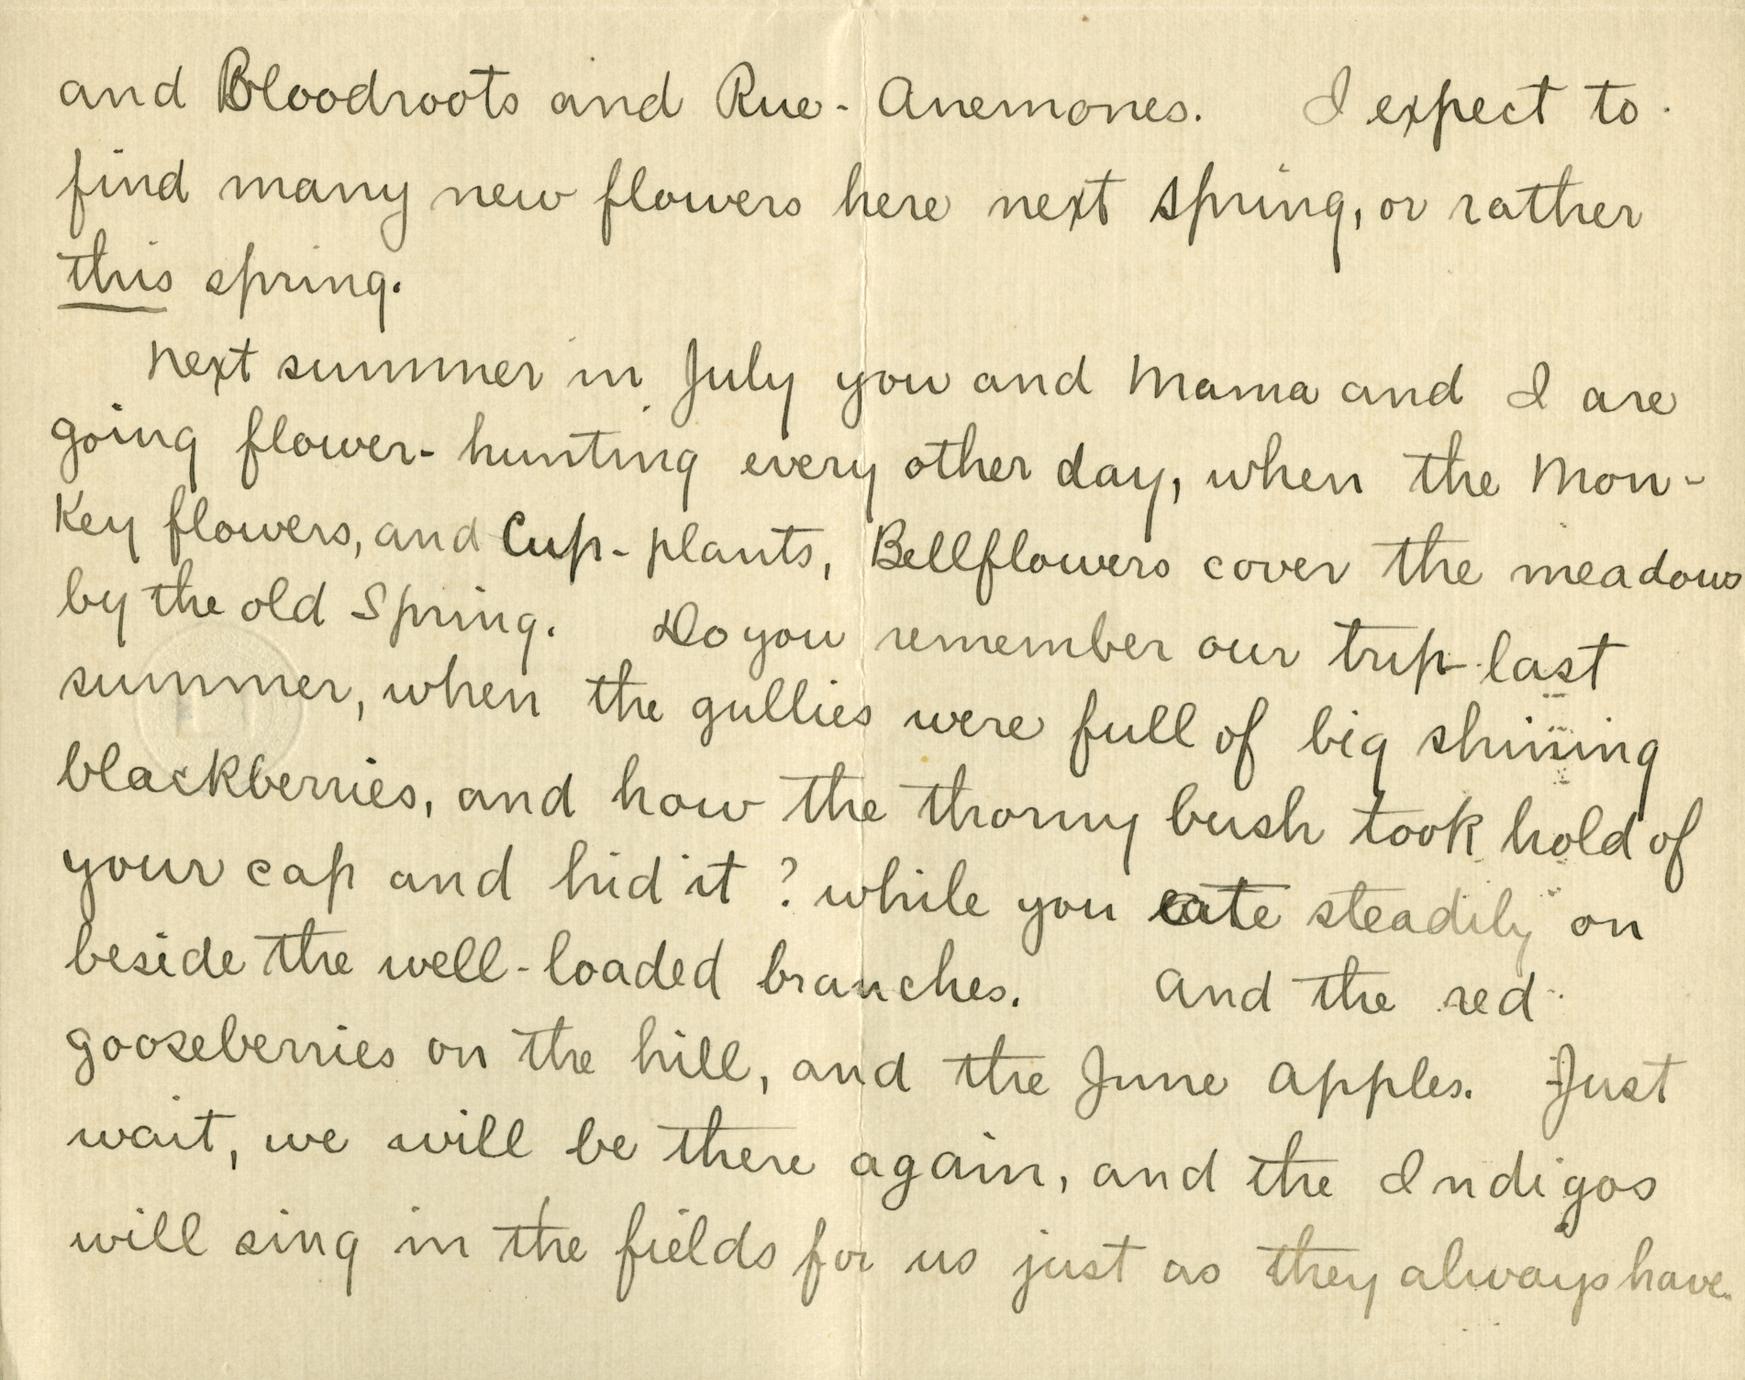 and Bloodroots and Rue-Anemones. I expect to
find many new flowers here next spring, or rather
this spring.
Next summer in July you and Mama and I are
going flower-hunting every other day, when the Mon-
key flowers, and Cup-plants, Bellflowers cover the meadows
by the old Spring. Do you remember our trip last
summer, when the gullies were full of big shining
blackberries, and how the thorny bush took hold of
your cap and hid it? while you ate steadily on
beside the well-loaded branches. And the red
gooseberries on the hill, and the June apples. Just
wait, we will be there again, and the Indigos
will sing in the fields for us just as they always have.